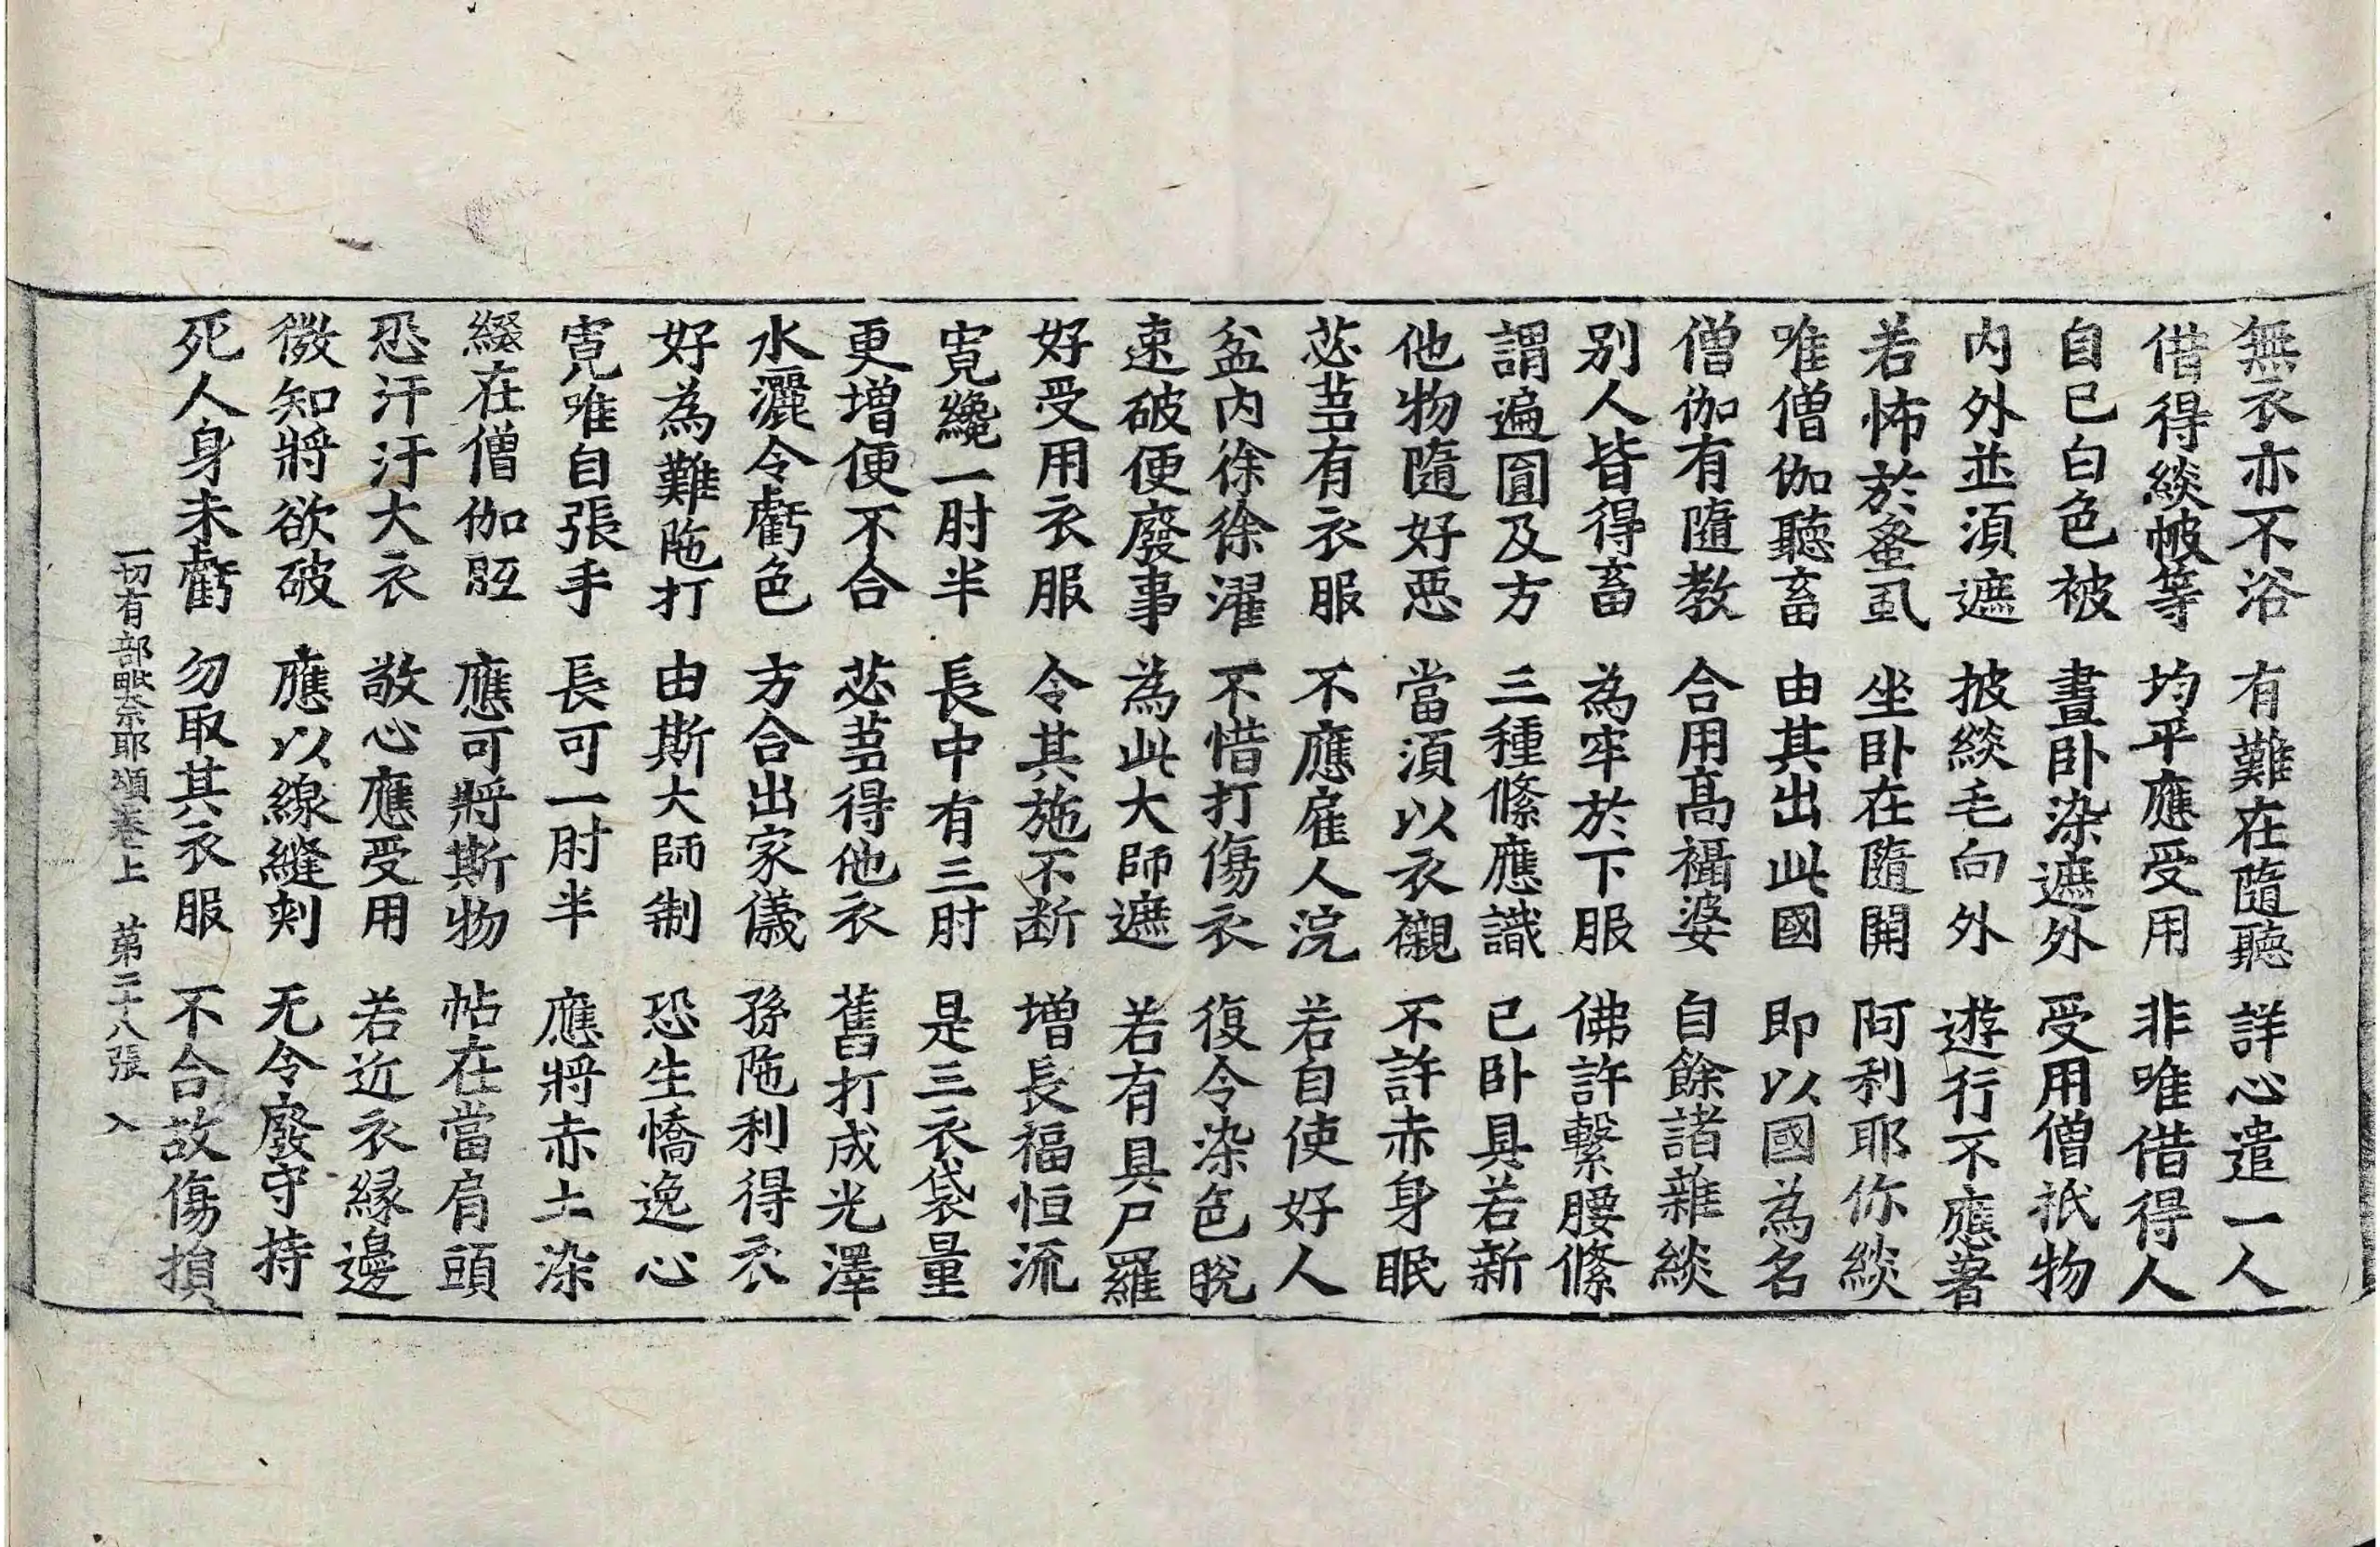 無衣亦不浴 有難在隨聽 詳心遣一人
借得緂帔等 均平應受用 非唯借得人
自已白色被 晝卧染遮外 受用僧祇物
内外並須遮 披緂毛向外 遊行不應著
若怖於蚤虱 坐卧在隨開 阿利耶你緂
唯僧伽聽畜 由其出此國 即以國為名
僧伽有隨教 合用髙襵婆 自餘諸雜緂
別人皆得畜 為牢於下服 佛許繫腰絛
謂遍圓及方 三種絛應識 已卧具若新
他物隨好惡 當須以衣襯 不許赤身眠
苾蒭有衣服 不應雇人浣 若自使好人
盆内徐徐濯 不惜打傷衣 復令染色脫
速破便廢事 為此大師遮 若有具尸羅
好受用衣服 令其施不断 增長福恒流
寬纔一肘半 長中有三肘 是三衣袋量
更增便不合 苾蒭得他衣 舊打成光澤
水灑令虧色 方合出家儀 孫陁利得衣
好為難陁打 由斯大師制 恐生憍逸心
寬唯自張手 長可一肘半 應將赤土染
綴在僧伽胝 應可將斯物 帖在當肩頭
恐汗汙大衣 敬心應受用 若近衣緣邊
微知將欲破 應以線縫刺 无令廢守持
死人身未虧 勿取其衣服 不合故傷損
一切有部毗奈耶頌卷上 第二十八張 入